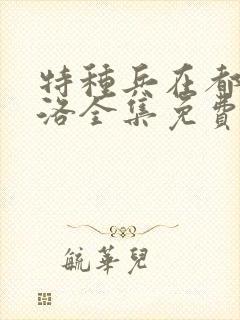 特種兵在都
洛全集免費
毓華兒